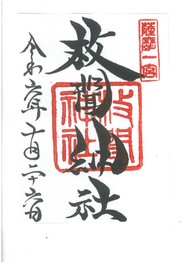 薩摩一宮
枚聞神社
枚聞
神社
令和六年十月二十六日